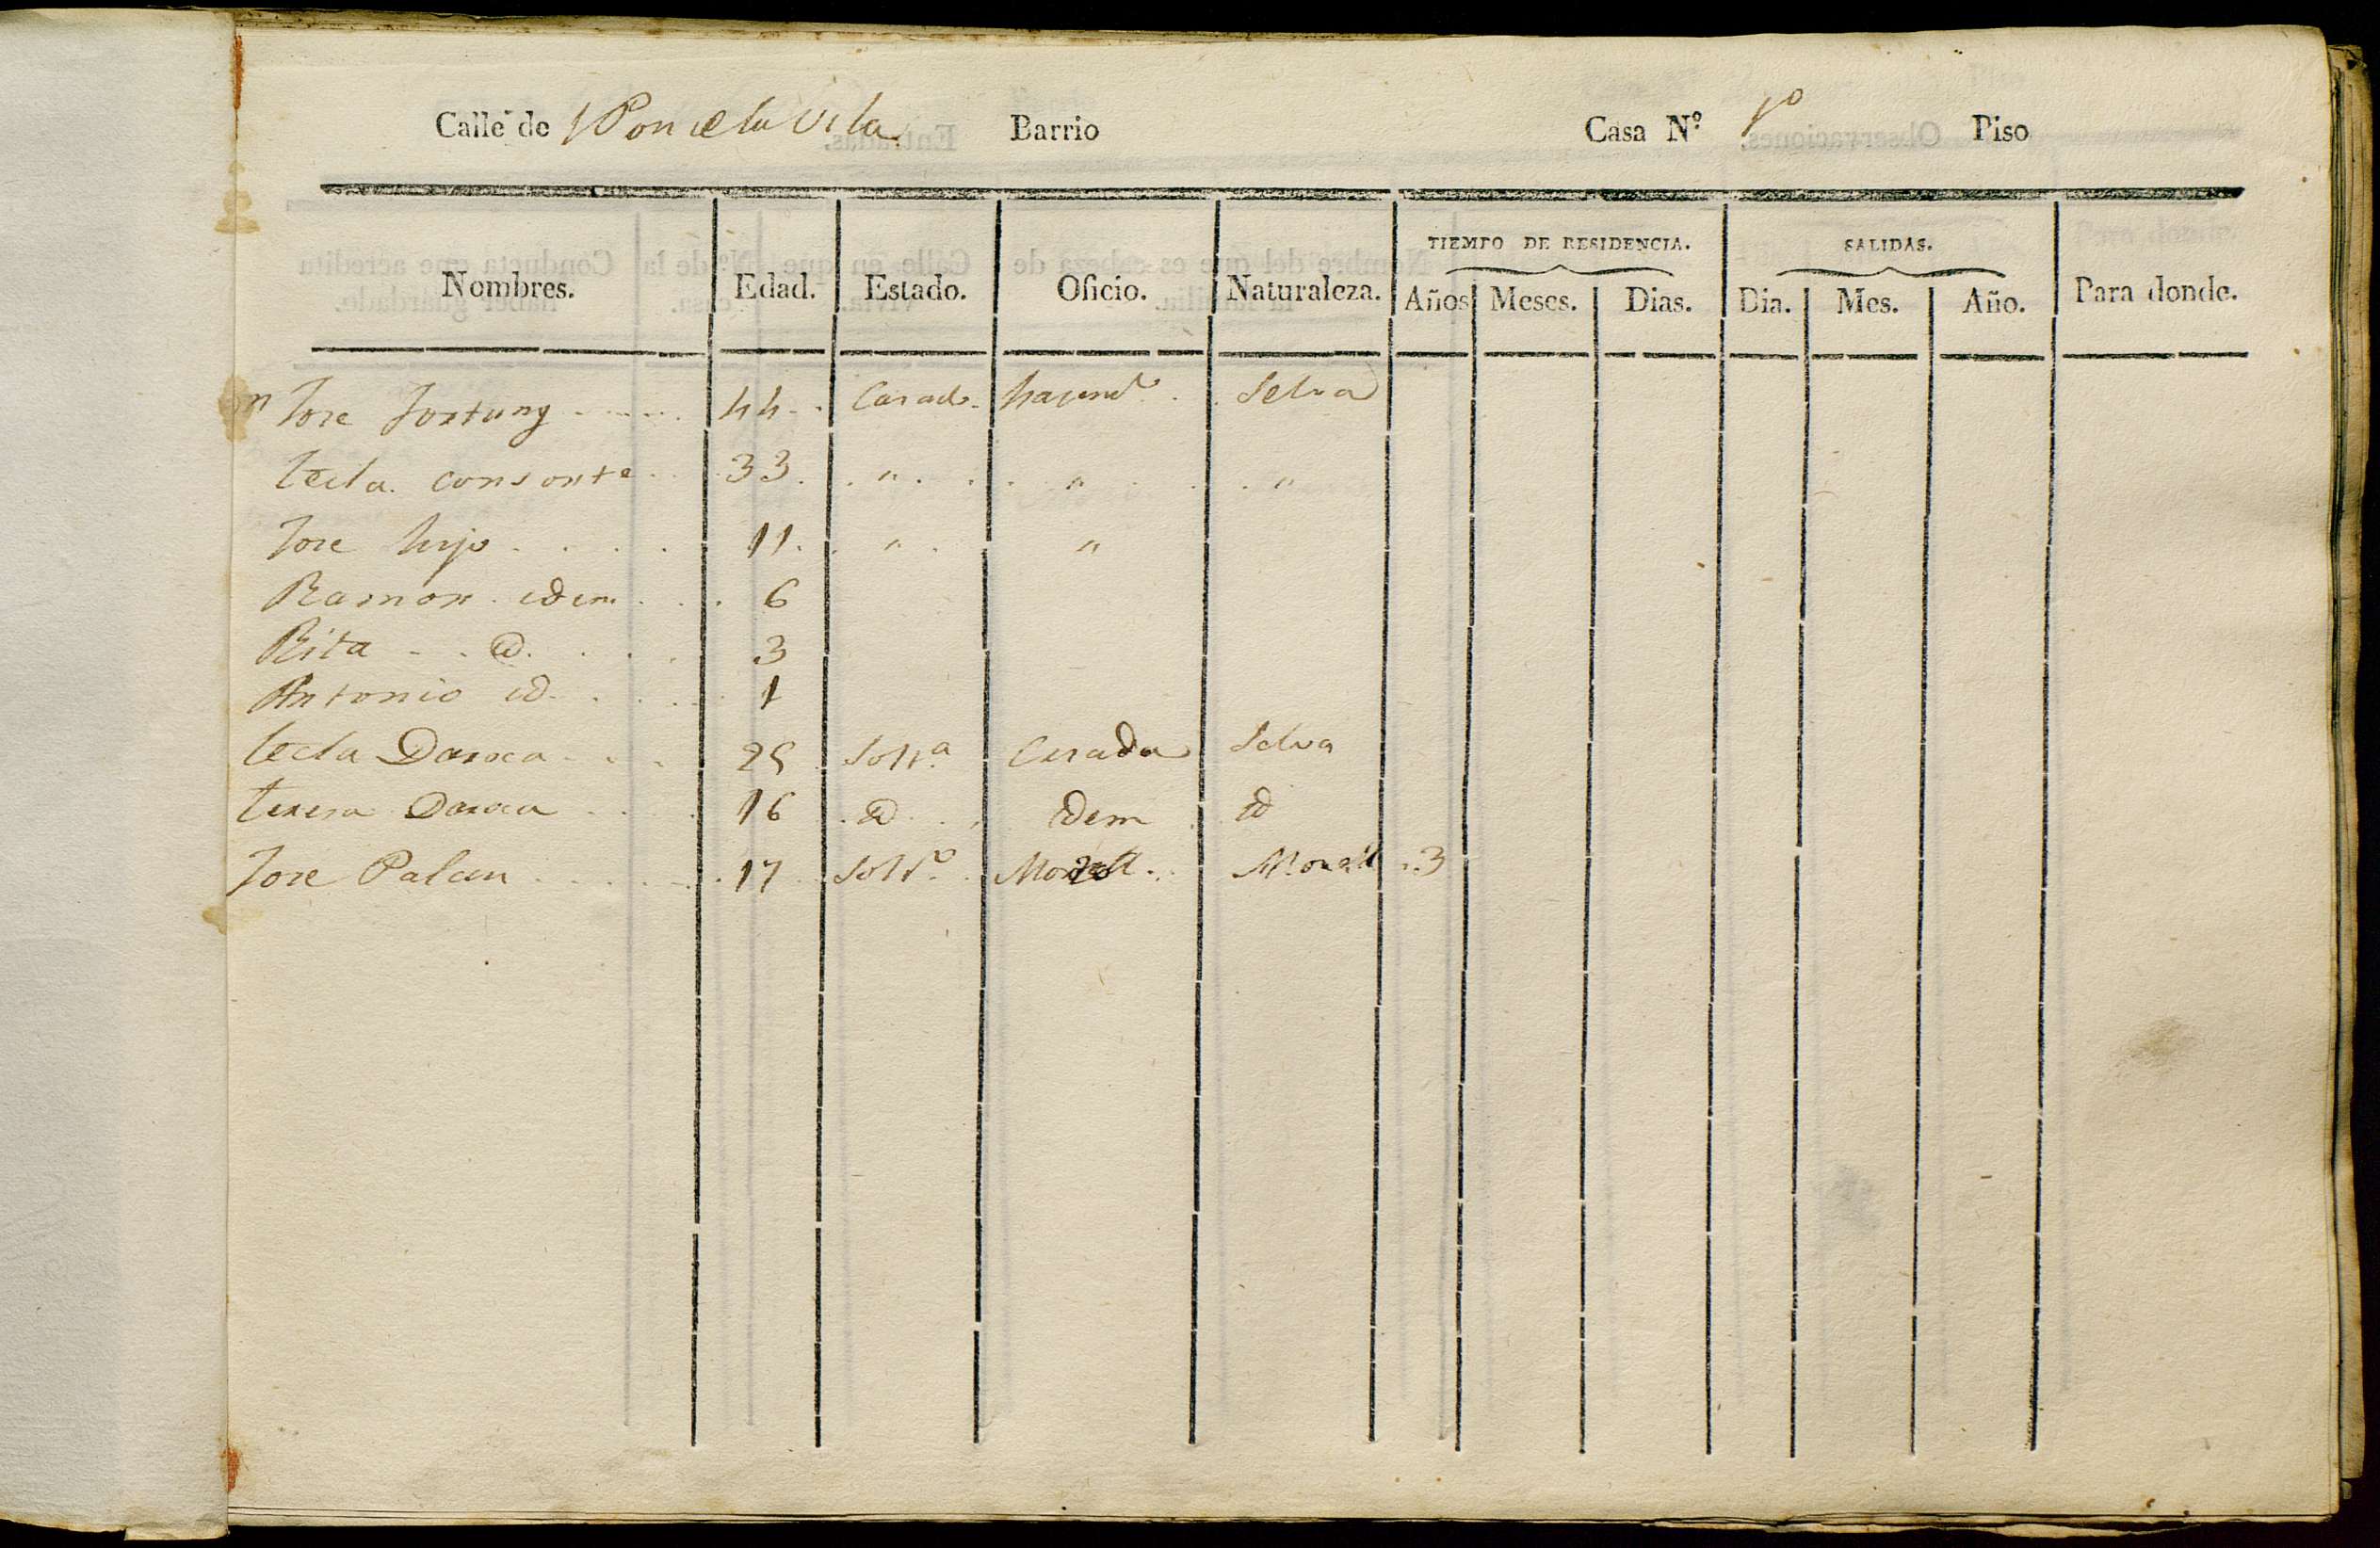 Calle de Barrio Casa Nº 1º Piso
TIEMPO DE RESIDENCIA. SALIDAS.
Nombres. Edad. Estado. Oficio. Naturaleza. Años Meses. Dias. Dia. Mes. Año. Para donde.
Jose Fortuny 44 Casado hasend.º Selva
Tecla Consonte 33 " " "
Jose hijo 11 " "
Ramon idem 6
Rita id. 3
Antonio id. 1
Tecla Daroca 25 Solt.ª Criada Selva
Teresa Daroca 16 id idem id
Jose Palau 17 Solt.º 3